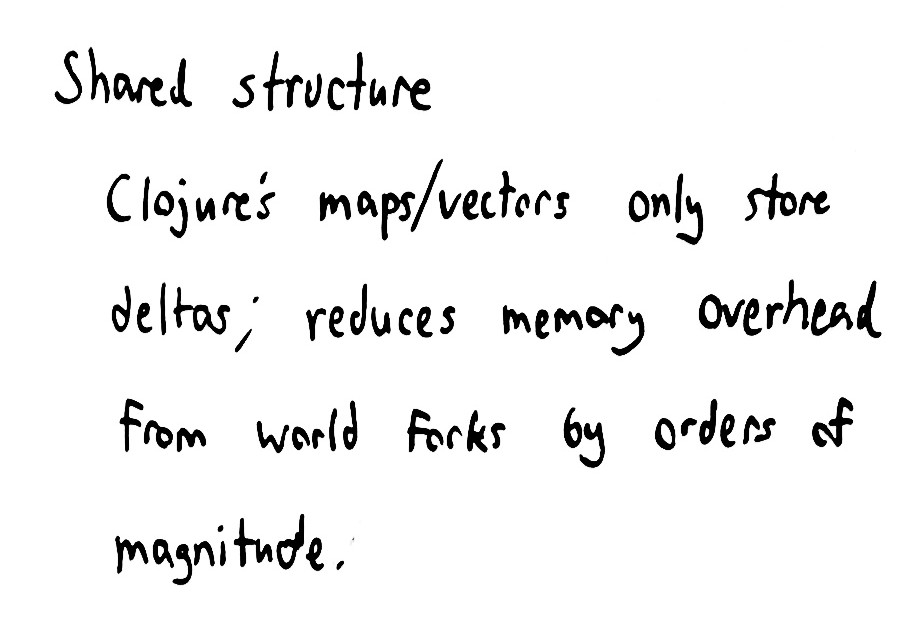 Shared structure
Clojure's maps/vectors only store
deltas; reduces memory overhead
from world forks by orders of
magnitude.